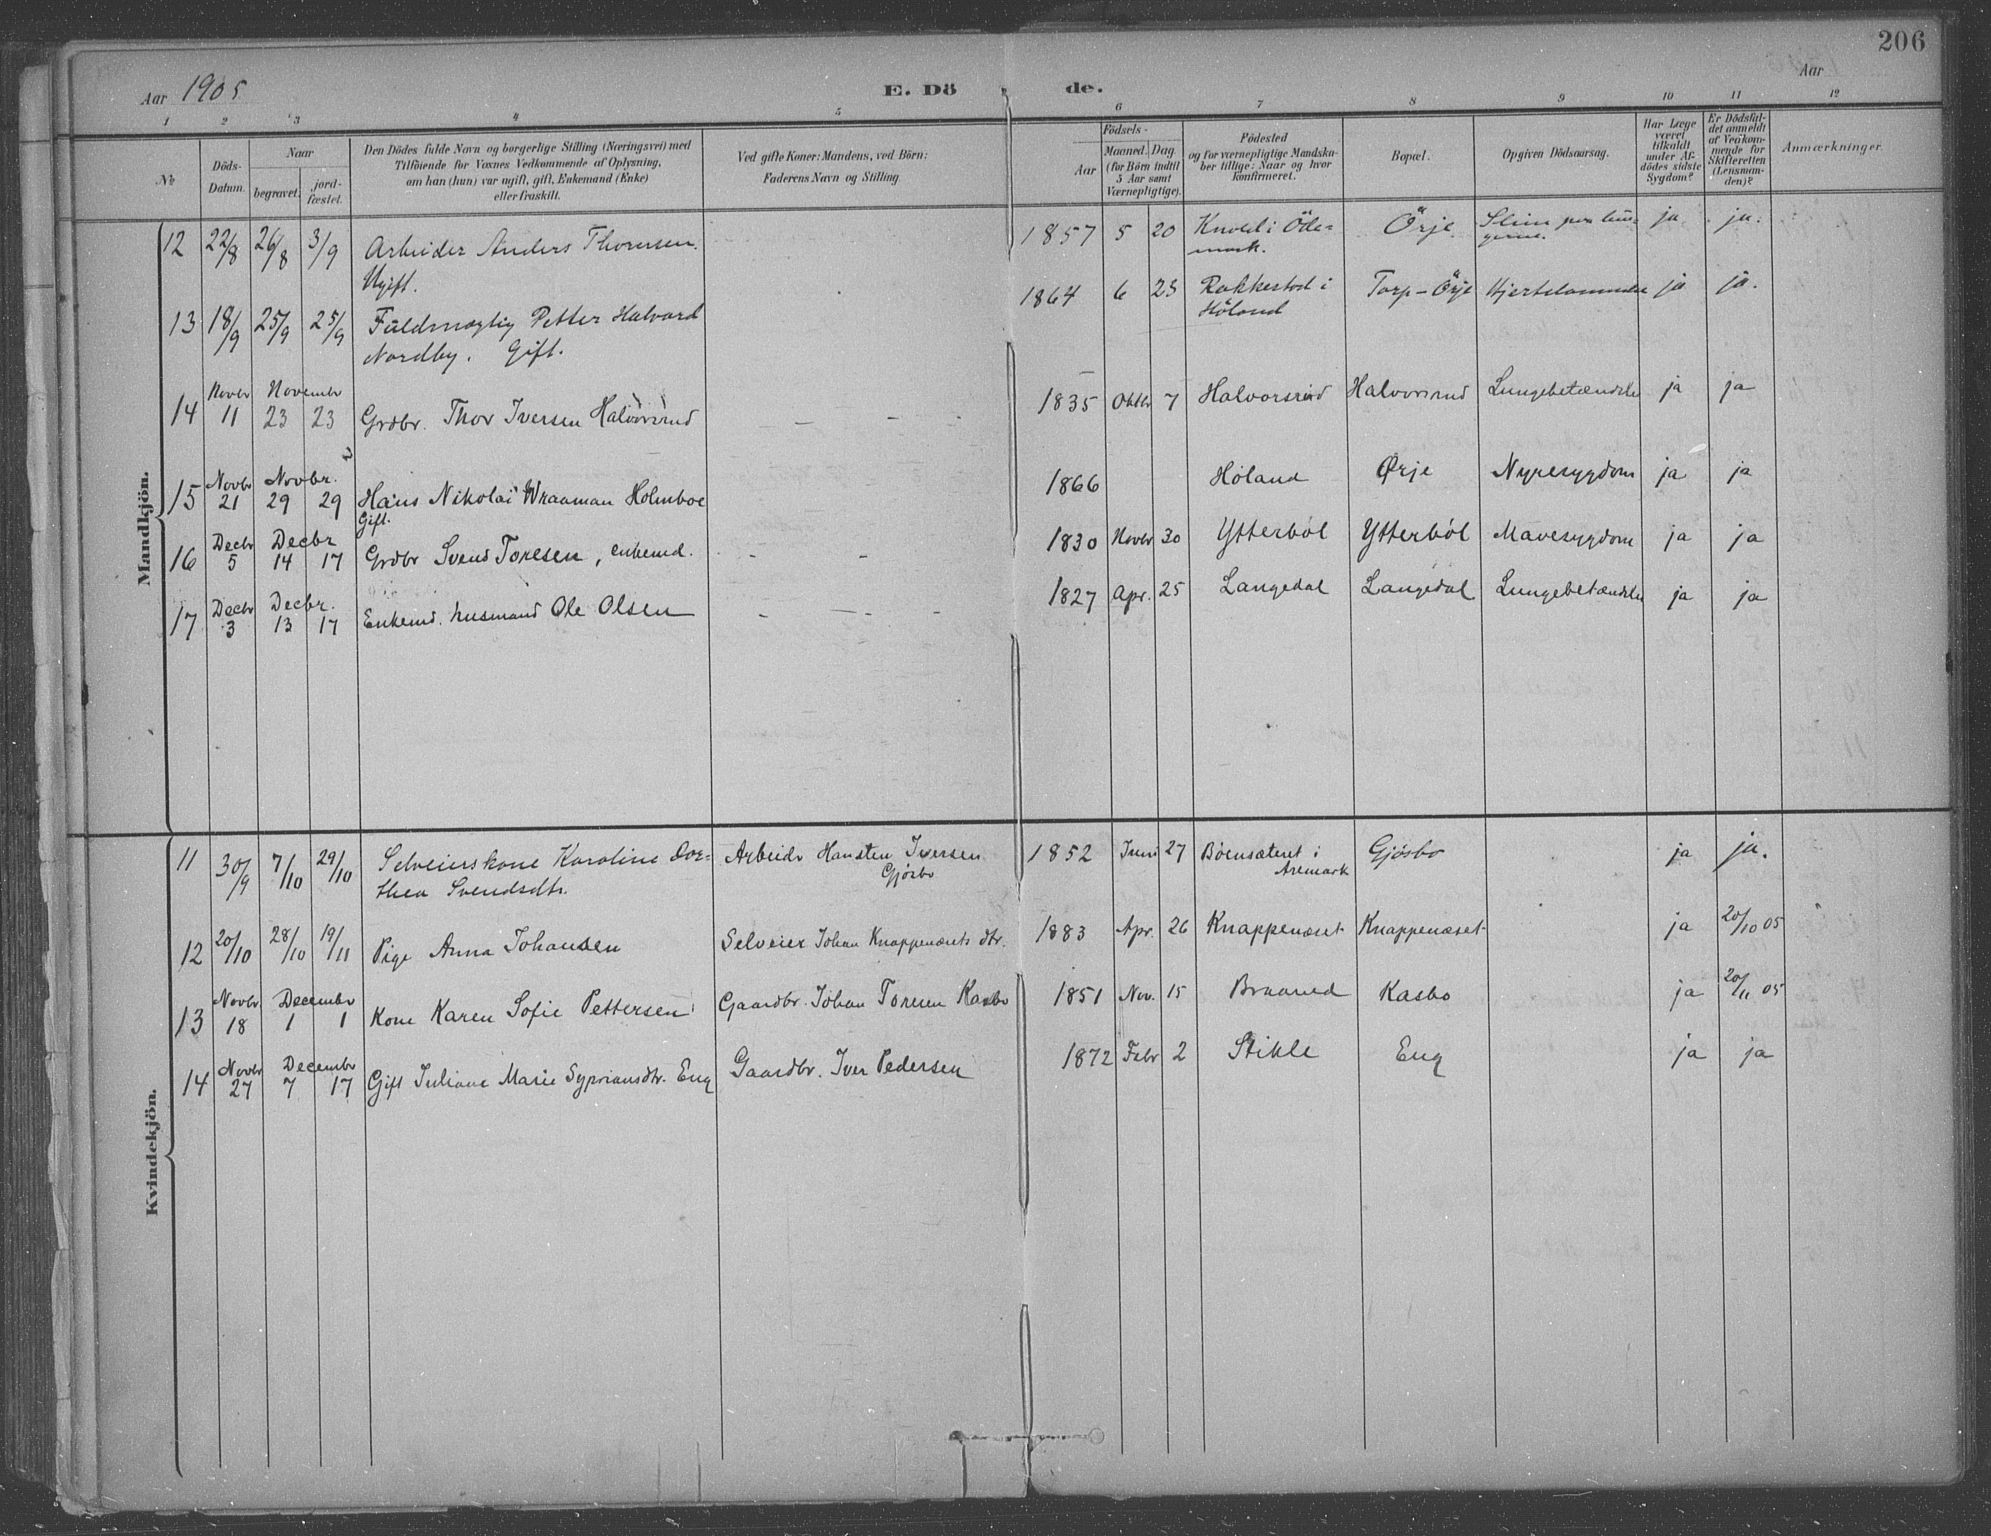 206
Aar 1905
E. Döde.
Aar
1 2 3 4 5 6 7 8 9 10 11 12
No
Döds-Datum.
Naar
begravet.
jord-fæstet.
Den Dödes fulde Navn og borgerlige Stilling (Næringsvei) med
Tilföiende for Voxnes Vedkommende af Oplysning,
om han (hun) var ugift, gift, Enkemand (Enke)
eller fraskilt.
Ved gifte Koner: Mandens, ved Börn:
Faderens Navn og Stilling.
Födsels-
Aar
Maaned. Dag
(for Börn indtil
5 Aar samt
Værnepligtige).
Födested
og for værnepligtige Mandska-
ber tillige: Naar og hvor
konfirmeret.
Bopæl.
Opgiven Dödsaarsag.
Har Læge
været
tilkaldt
under Af-
dödes sidste
Sygdom?
Er Dödsfal-
det anmeldt
af Vedkom-
mende for
Skifteretten
(Lensman-
den)?
Anmærkninger.
Mandkjön.
12 22/8 26/8 3/9 Arbeider Anders Thoresen. 1857 5 20 Knold i Öde- Örje Slim paa lun- ja. ja.
Ugift. mark. gerne.
13 18/9 25/9 25/9 Fuldmægtig Petter Halvard 1864 6 23 Rakkestad i Torp - Örje Hjertelammelse ja ja.
Nordby. Gift. Höland
14 Novbr 11 November 23 23 Grdbr. Thor Iversen Halvorsrud - - 1835 Oktbr 7 Halvorsrud Halvorsrud Lungebetændelse ja ja
15 Novbr 21 Novbr. 29 29 Hans Nikolai Wraaman Holmboe 1866 Höland Ørje Nyresygdom ja ja
Gift.
16 Decbr 5 Decbr 14 17 Grdbr Svend Toresen, enkemd. - - 1830 Novbr 30 Ytterböl Ytterböl Mavesygdom ja ja
17 Decbr 3 Decbr. 13 17 Enkemd. husmand Ole Olsen - - 1827 Apr. 25 Langedal Langedal Lungebetændelse ja ja
Kvindekjön.
11 30/9 7/10 29/10 Selveierskone Karoline Dor- Arbeidr Hansten Iversen 1852 Juni 27 Böensæteret i Gjösbo ja ja.
thea Svendsdtr. Gjösbo Aremark
12 20/10 28/10 19/11 Pige Anna Johansen Selveier Johan Knappenæsets dtr. 1883 Apr. 26 Knappenæset Knappenæset ja 20/10 05
13 Novbr 18 December 1 1 Kone Karen Sofie Pettersen Gaardbr. Johan Toresen Kasbo 1851 Nov. 15 Braarud Kasbo ja 20/11 05
14 Novbr 27 December 7 17 Gift Juliane Marie Syprriansdtr. Eng Gaardbr. Iver Pedersen 1872 Febr 2 Stikle Eng ja ja